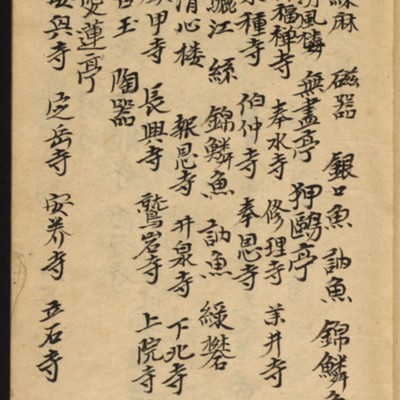 麻 磁器 銀口魚 訥魚 錦鱗魚
風樓 無盡亭 狎鷗亭
福禅寺 奉水寺 修理寺 井寺
種寺 伯仲寺 奉恩寺
驪江 絲 錦鱗魚 訥魚 緑礬
清心楼 報恩寺 井泉寺 下北寺
甲寺 長興寺 鷲岩寺 上院寺
玉 陶器
愛蓮亭
安興寺 定岳寺 安养寺 立石寺